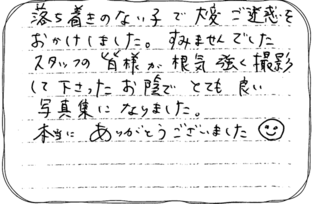 落ち着きのない子で大変ご迷惑を
おかけしました。すみませんでした
スタッフの皆様が根気強く撮影
して下さったお陰でとても良い
写真集になりました。
本当にありがとうございました